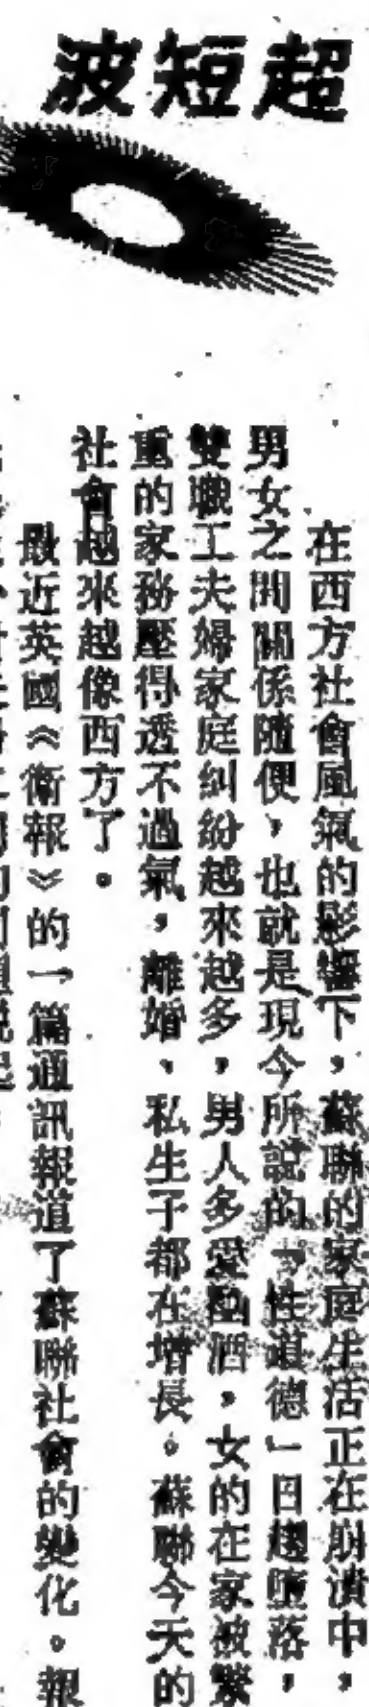 超短波
在西方社會風氣的影響下，蘇聯的家庭生活正在崩潰中，
男女之間關係隨便，也就是現今所說的「性道德」日趨墮落，
雙職工夫婦家庭糾紛越來越多，男人多愛酗酒，女的在家被繁
重的家務壓得透不過氣，離婚、私生子都在增長。蘇聯今天的
社會越來越像西方了。
最近英國《衛報》的一篇通訊報道了蘇聯社會的變化。報